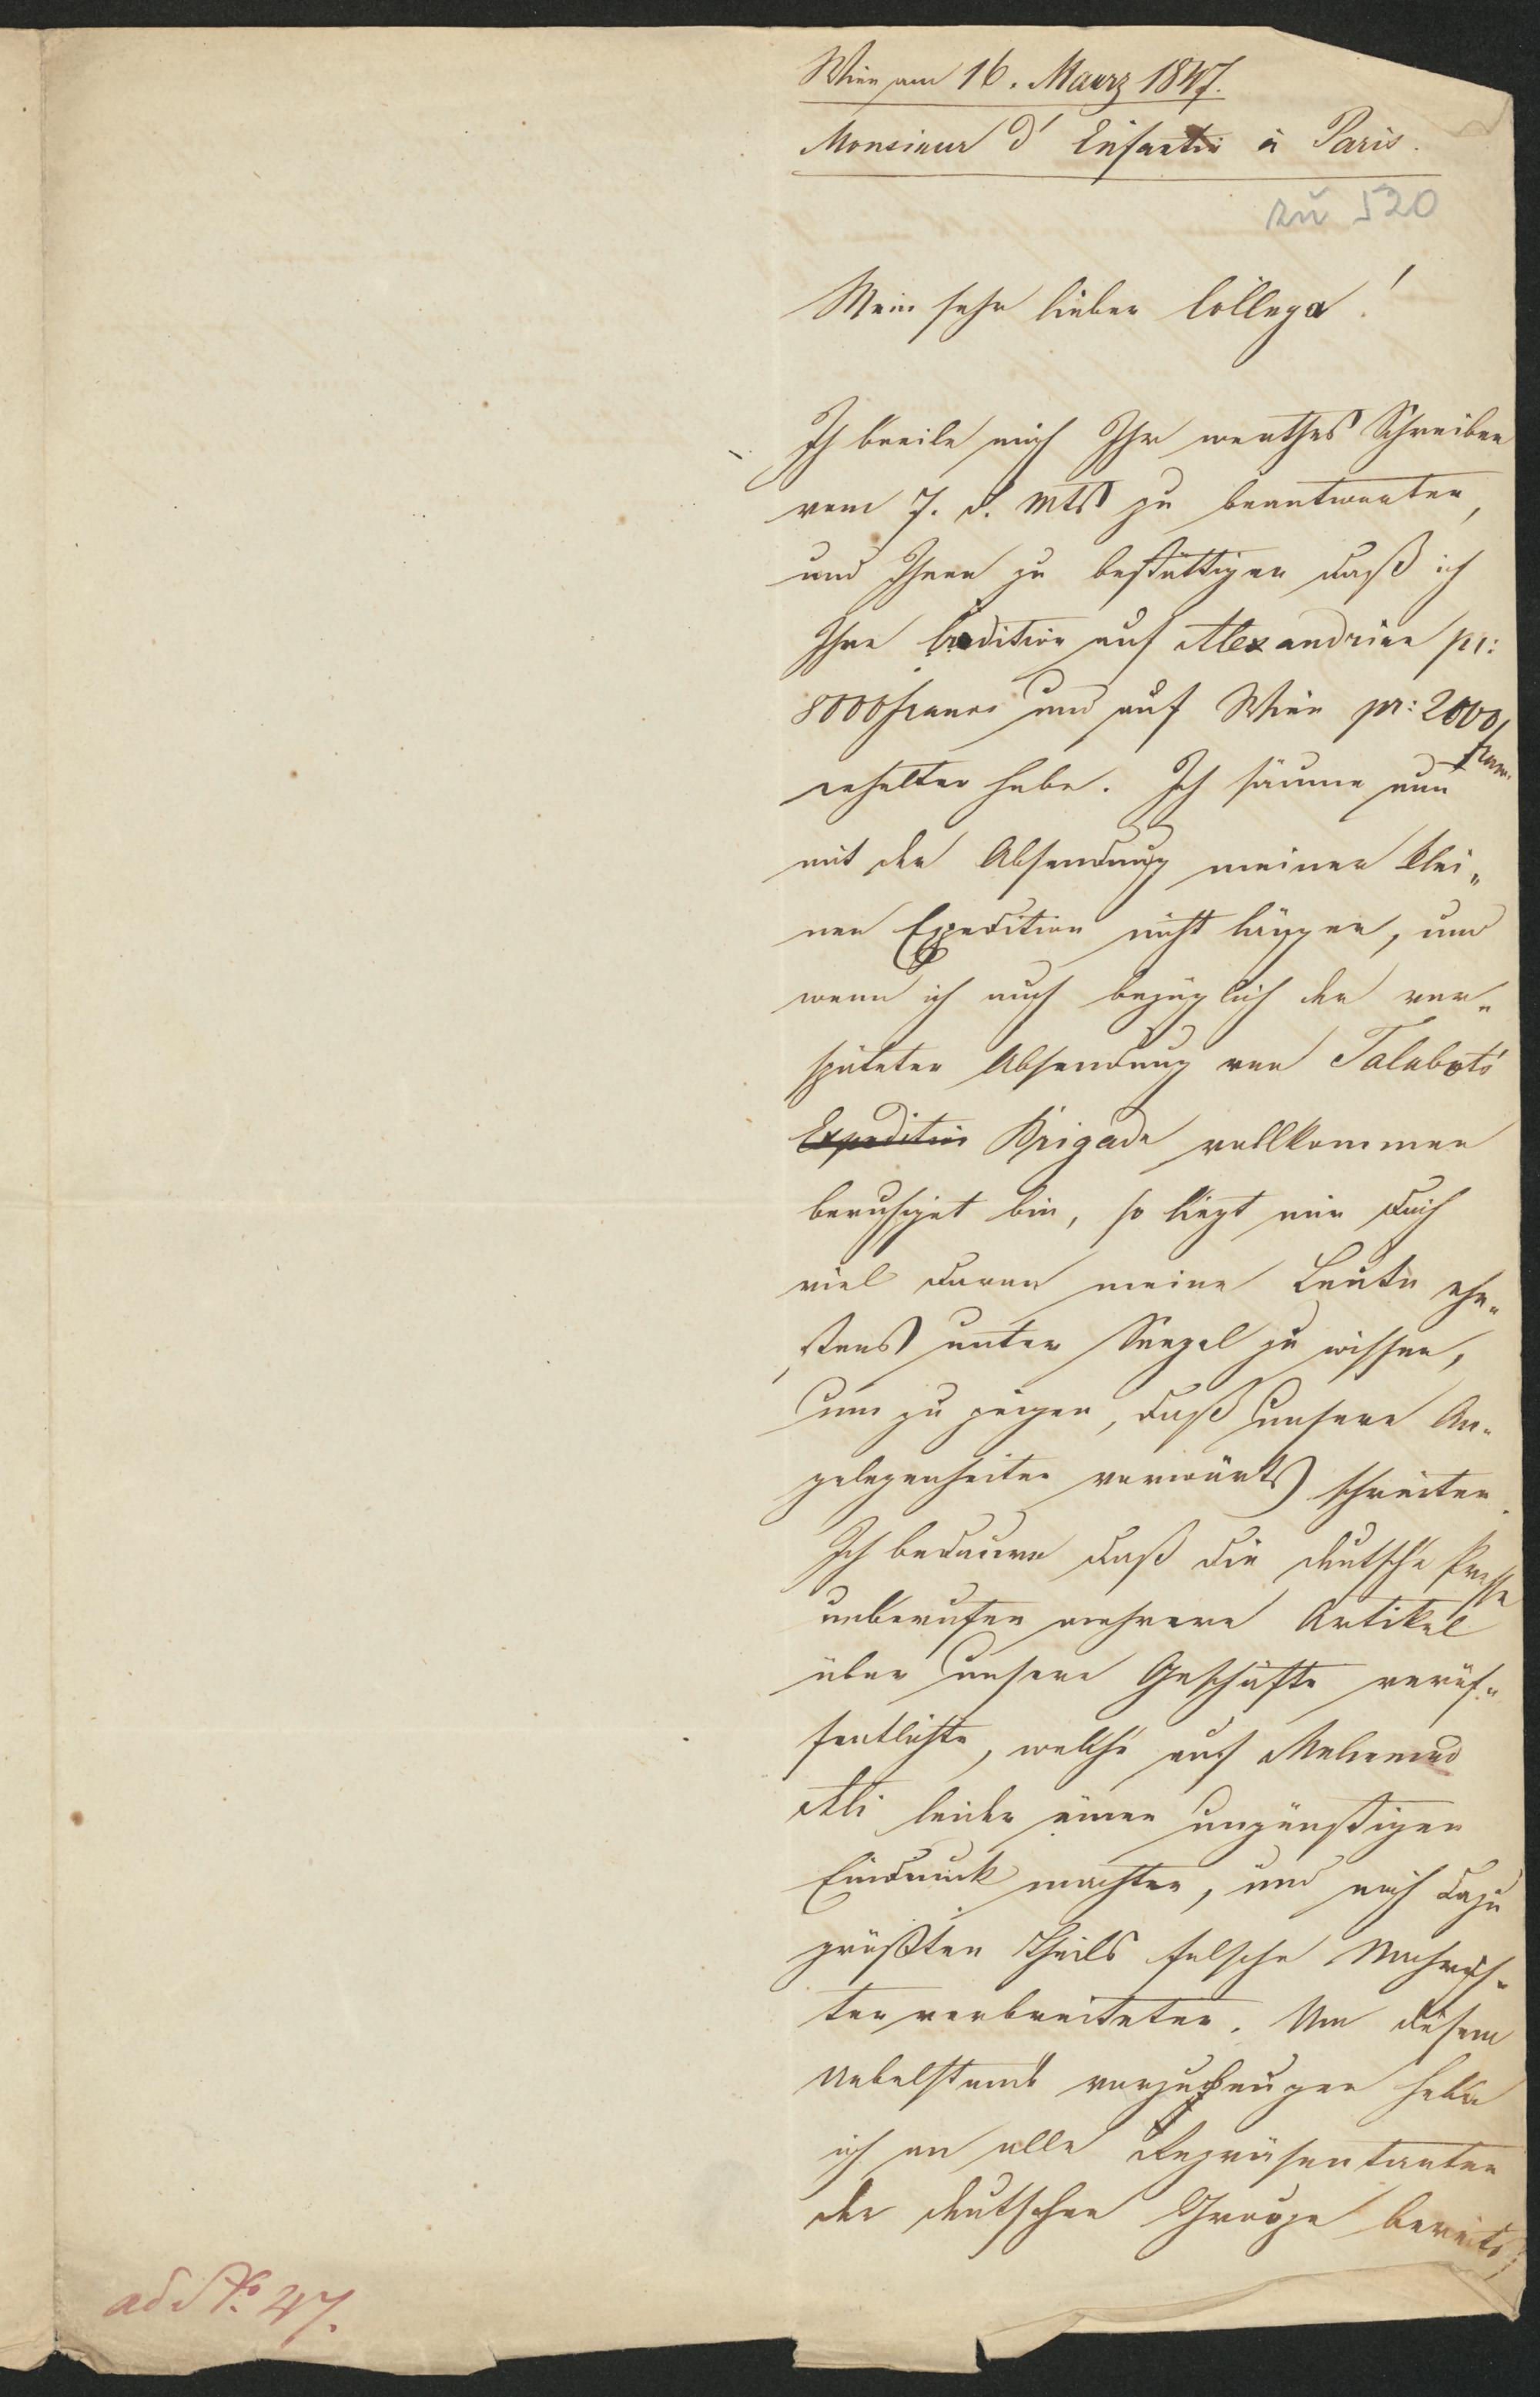 Wien am 16. Maerz 1847.
Monsieur d' Enfantin à Paris.
zu 520
Mein sehr lieber Collega!
Ich beeile mich Ihr werthes Schreiben
vom 7. d. Mts zu beantworten,
und Ihnen zu bestättigen daß ich
Ihre Creditive auf Alexandrien pr:
8000 francs und auf Wien pr: 2000
francs
erhalten habe. Ich säume nun
mit der Absendung meiner klei„
nen Expedition nicht länger, und
wenn ich auch bezüglich der ver„
späteten Absendung von Talabots
Expedition Brigade vollkommen
beruhiget bin, so liegt mir doch
viel daran meine Leute ehe„
stens unter Seegel zu wissen,
um zu zeigen, daß unsere An„
gelegenheiten vorwärts schreiten.
Ich bedaure daß die deutsche Presse
unberufen mehrere Artikel
über unsere Geschäfte veröf„
fentlichte, welche auf Mehemed
Ali leider einen ungünstigen
Eindruck machten, und noch dazu
größten Theils falsche Nachrich„
ten verbreiteten. Um diesem
Uebelstande vorzubeugen habe
ich an alle Repräsentanten
der deutschen Gruppe bereits
ad No. 47.